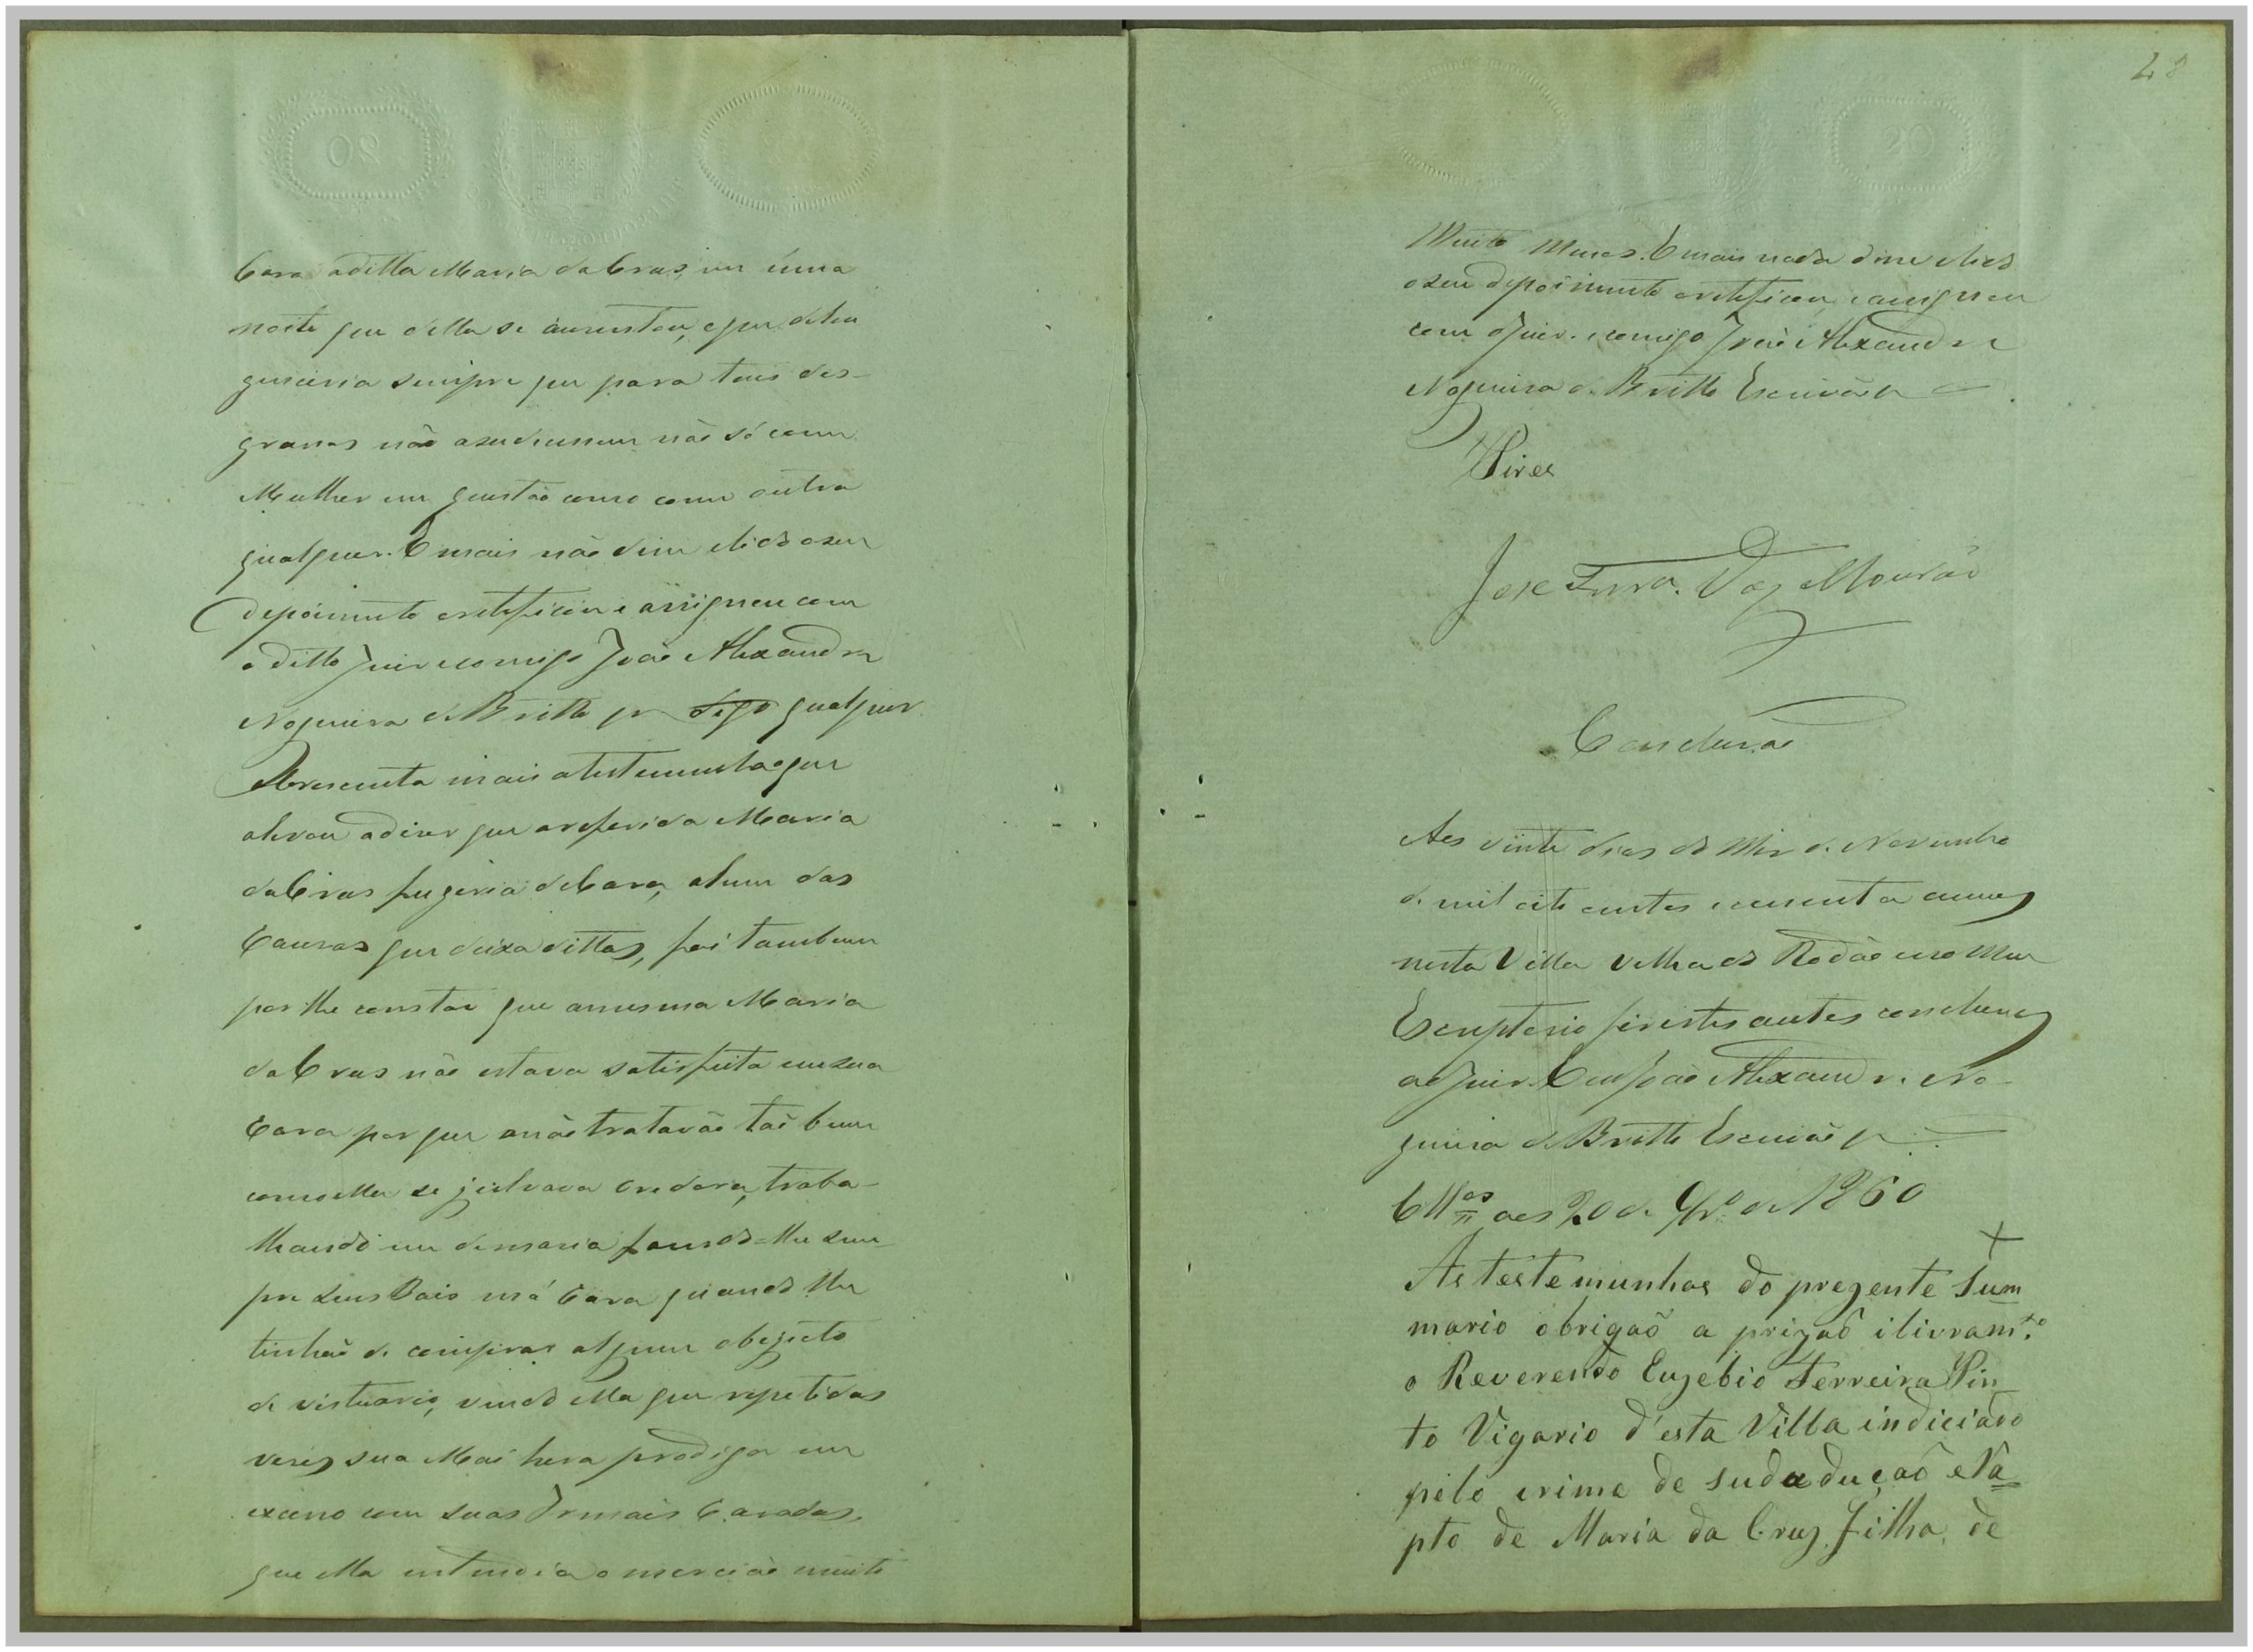 Caza aditta Maria da Crus, em úma
noite que della se auzentou, e que delia
queireria sempre que para tais des-
graças não azuduzem não só com
Mulher em questão como com outra
qualquer. E mais não disse elido oseu
depoimento eretificou e assignou com
o ditto Juis ecomigo João Alexandre
Nogueira de Britto q digo qualquer
Acrescenta mais atestemunha que
ouvou adizer que areferida Maria
da Crus fugeria de Caza, alem das
Cauzas que deixa dittas, foi tambem
por lhe constar que amesma Maria
da Crus não estava satisfeita em sua
Caza por que anão tratavão taõ bem
como ella se julvava credora, traba-
lhando em demazia fazendo-lhe sem
pre seus Pais má Cara quando lhe
tinhaõ de comprar algum obejeto
de vistuario, vendo ella que repetidas
vezes sua Mai hera prodiga em
exceço com suas Irmais Cazadas,
que ella entendia o merciaõ muito
48
Muito Menos. E mais nada disse elido
o seu depoimento eretificou, e assignou
com o Juis. e comigo João Alexandre
Nogueira de Britto Escrivão q
Pires
Jose Ferra. Vaz Mourão
Concluzaõ
Aos vinte dias do Mes de Novembro
de mil oito centos e secenta annos
nesta Villa velha do Rodão e no Meu
Escriptorio fis estes autos concluzos
ao Juis. E eu João Alexandre No-
gueira de Britto Escrivão q
Cllos aos 20 de 9bro de 1860
As testemunhas do prezente Sum
mario obrigaõ a prizaõ ilivramto.
o Reverendo Euzebio Ferreira Pin
to Vigario d'esta Villa indiciado
pelo crime de sududuçaõ e Ra
pto de Maria da Cruz filha de